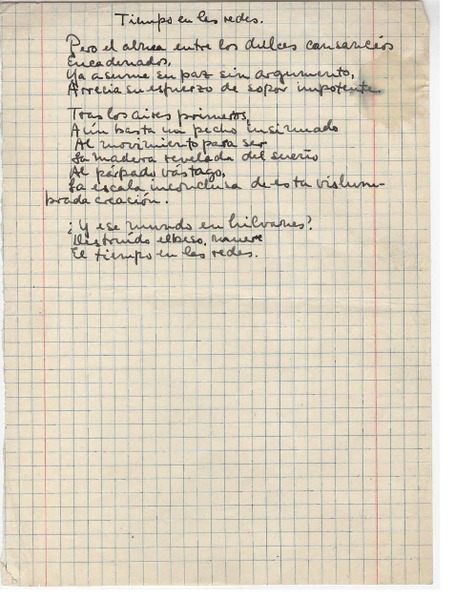 Tiempo en las redes.
Pero el alma entre los dulces cansancios
Encadenados,
Ya asume su paz sin argumento,
Arrecia su esfuerzo de sopor impotente
Tras los aires primeros,
Aún basta un pecho insinuado
Al movimiento para ser
La madera revelada del sueño
Al párpado vástago,
La escala inconclusa de esta vislum-
brada creación.
¿Y ese mundo en hilvanes?
Destruido el beso, muere
El tiempo en las redes.